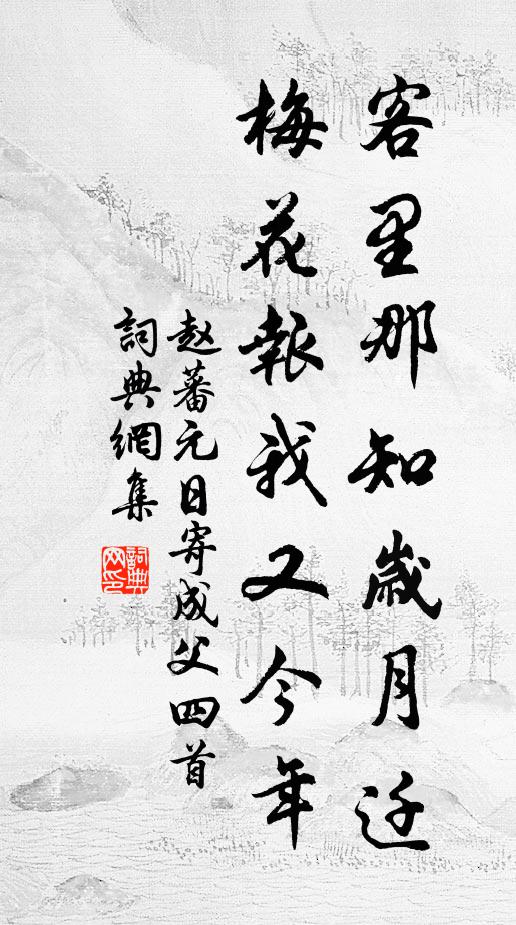 客里那知歲月迁
梅花報我又今年
赵蕃元日寄成父四首
詞典網集
詞典网印